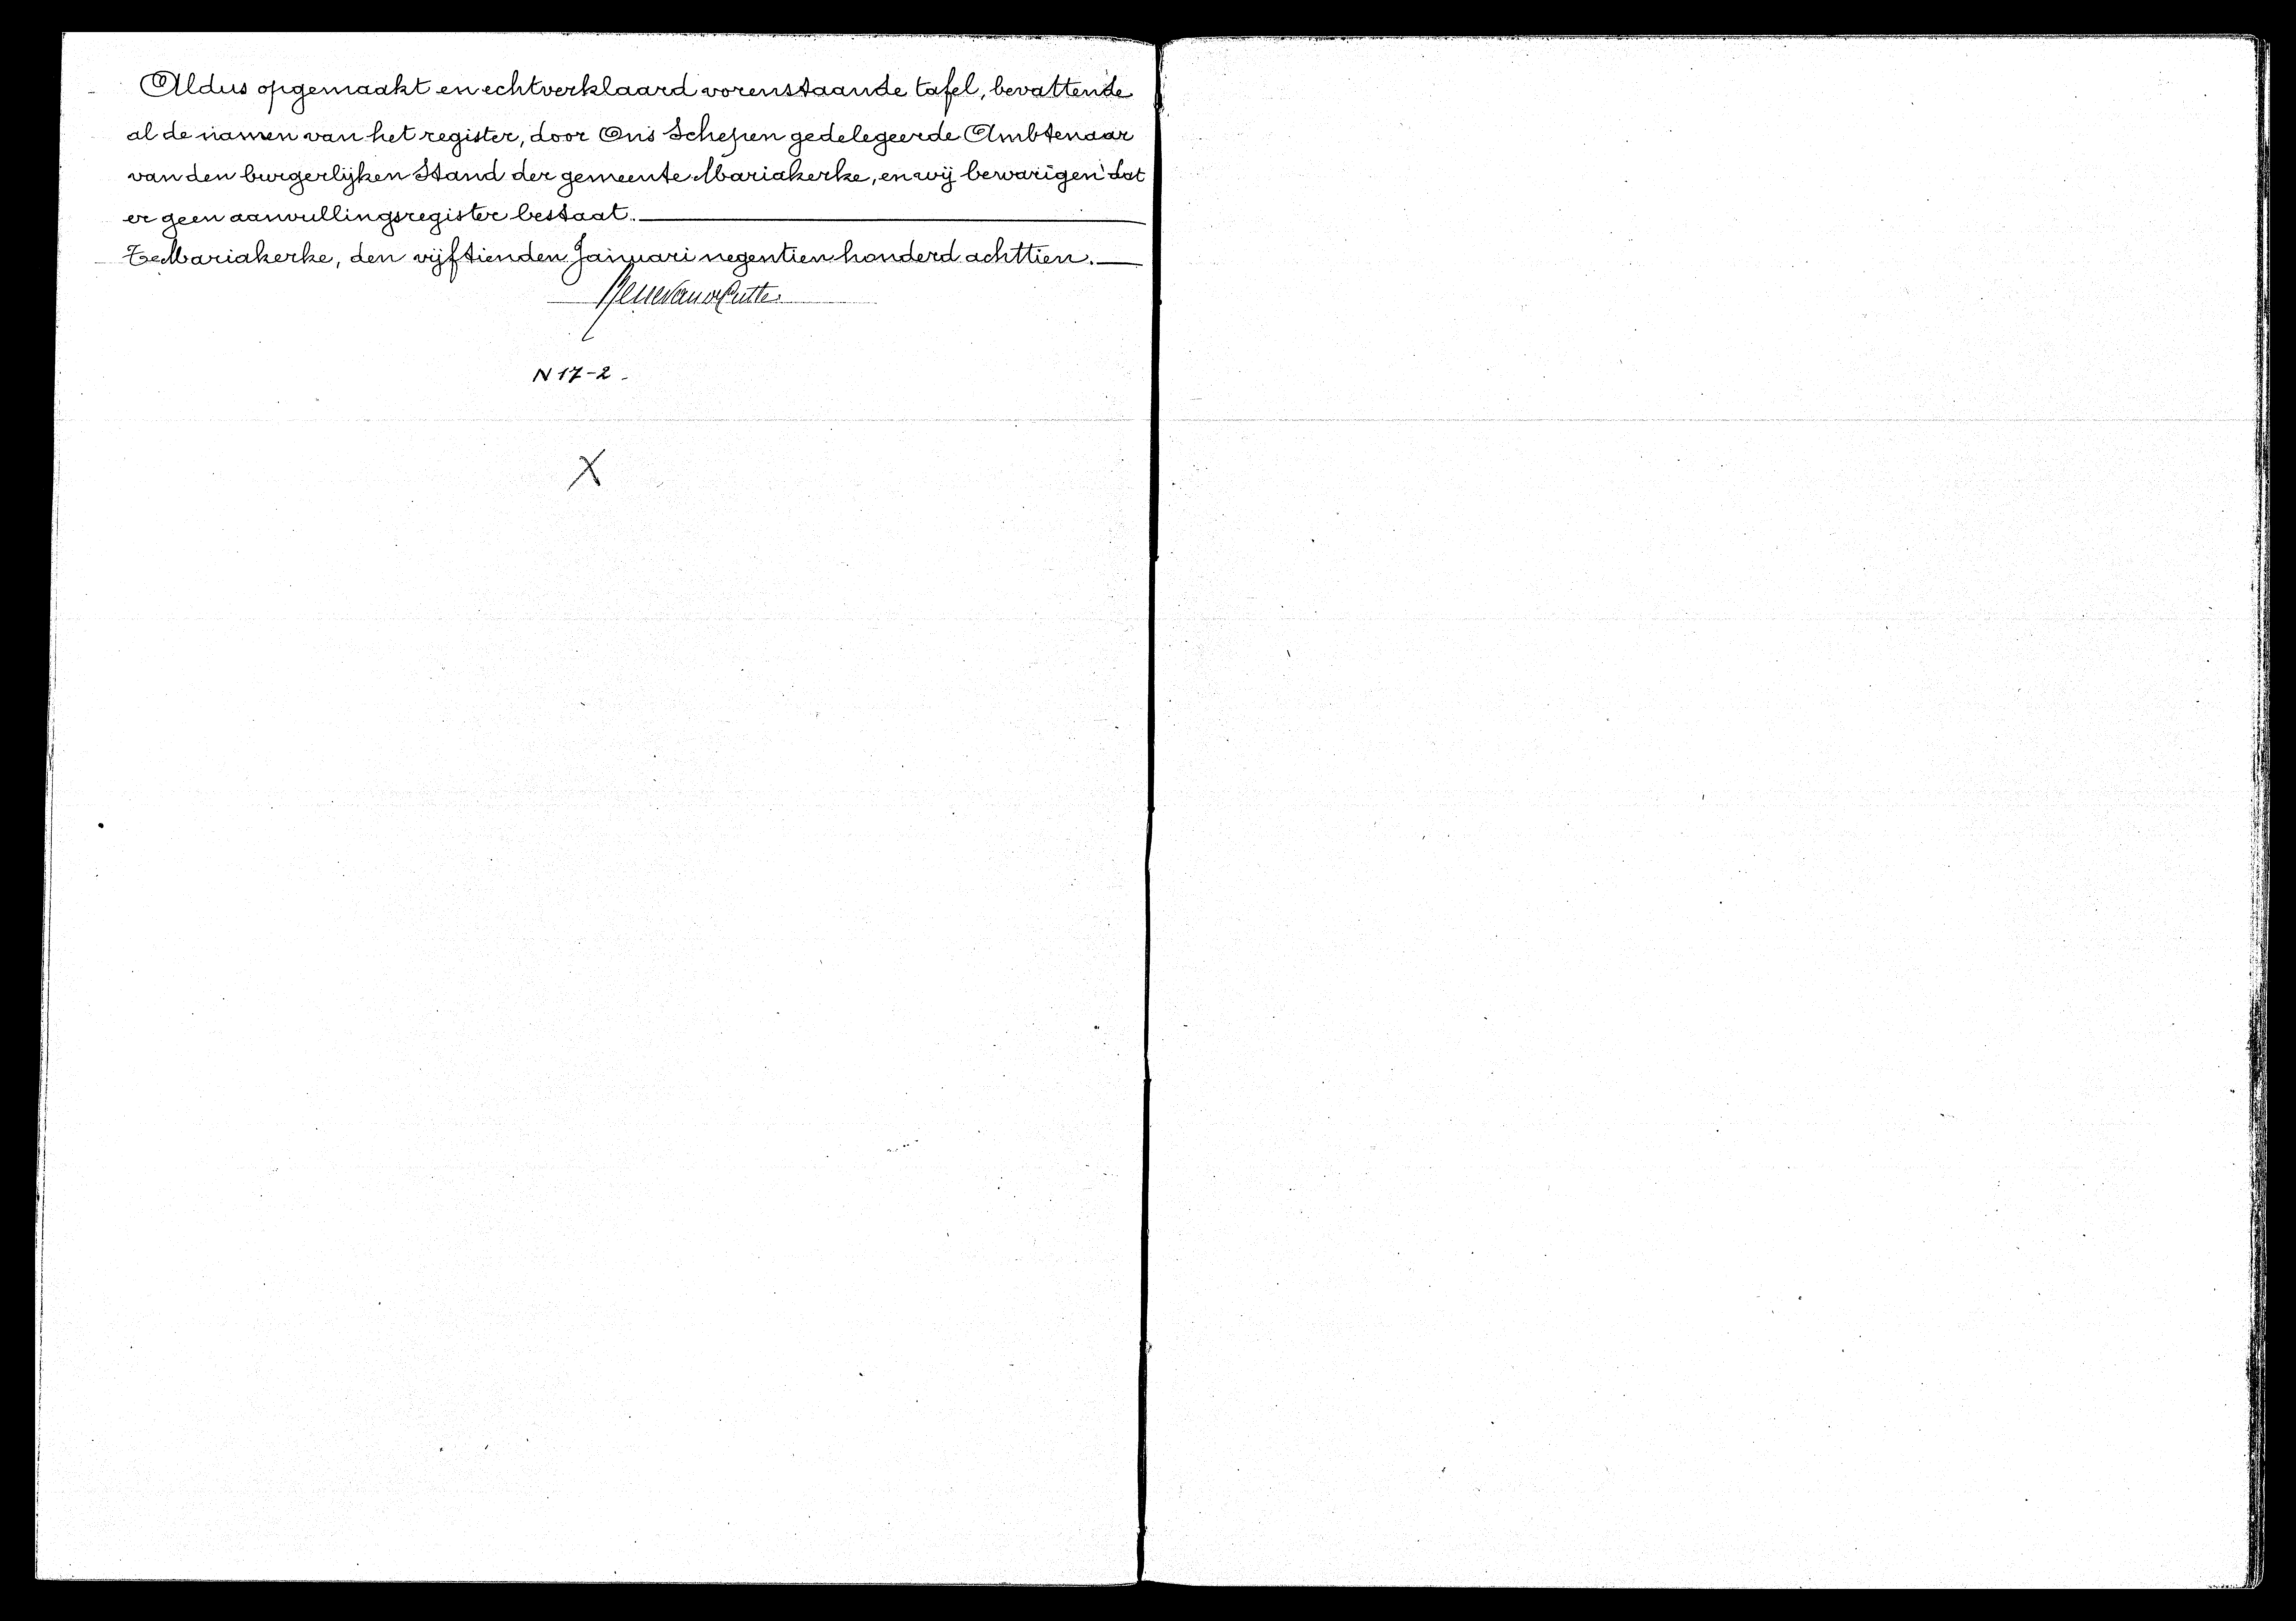 Aldus opgemaakt en echtverklaard vorenstaande tafel, bevattende
al de namen van het register, door Ons Schepen gedelegeerde Ambtenaar
van den burgerlijken Stand der gemeente Mariakerke, en wij bewarigen dat
er geen aanvullingsregister bestaat.
Te Mariakerke, den vijftienden Januari negentien honderd achttien.
N 17-2
X